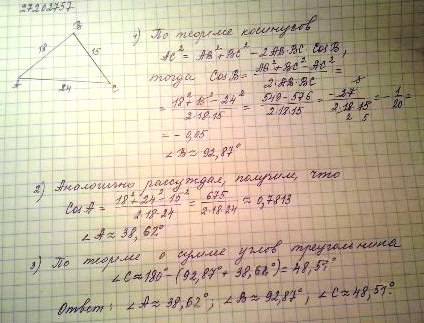 27202757
B
18
15
A
24
C
1) По теореме косинусов
AC² = AB² + BC² - 2AB·BC CosB,
тогда CosB = (AB² + BC² - AC²) / (2·AB·BC) =
= (18² + 15² - 24²) / (2·18·15) = (549 - 576) / (2·18·15) = -27 / (2·18·15) = -1/20 =
= -0,05
∠B ≈ 92,87°
2) Аналогично рассуждая, получим, что
CosA = (18² + 24² - 15²) / (2·18·24) = 675 / (2·18·24) ≈ 0,7813
∠A ≈ 38,62°
3) По теореме о сумме углов треугольника
∠C ≈ 180° - (92,87° + 38,62°) = 48,51°
Ответ: ∠A ≈ 38,62°, ∠B ≈ 92,87°, ∠C ≈ 48,51°.